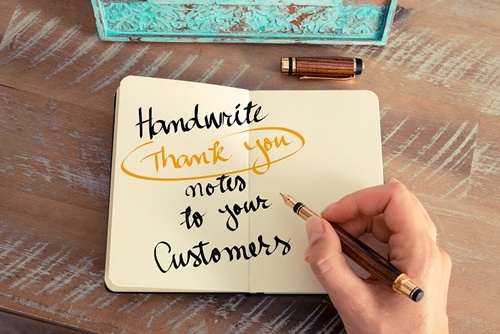 Handwrite
Thank you
notes
to your
Customers